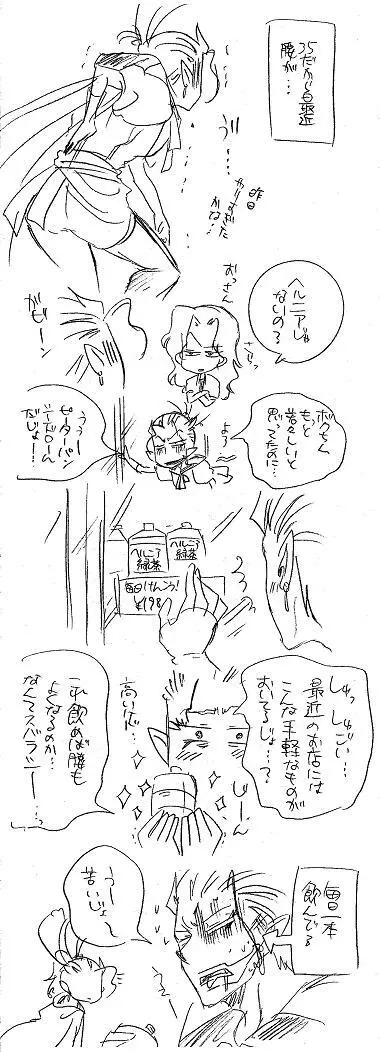 35だから最近
腰が…
う"…
昨日
やりすぎた
かな…
ヘルニアじゃ
ないの?
おっさん
ガビーン
ボクもく
もっと
若々しいと
思ってたのに…
よろ…
うぅー
ピーターパン
だじょー!
ヘルニア
緑茶
ヘルニア
緑茶
毎日けんこう!
¥198
しゅっしゅごい…
最近のお店には
こんな手軽なものが
おいてるじょ…?
じーん
高いが…
これ飲めば腰も
よくなるのか…
なんてスバラシー…
毎日一本
飲んでる
うー
苦いじょ～